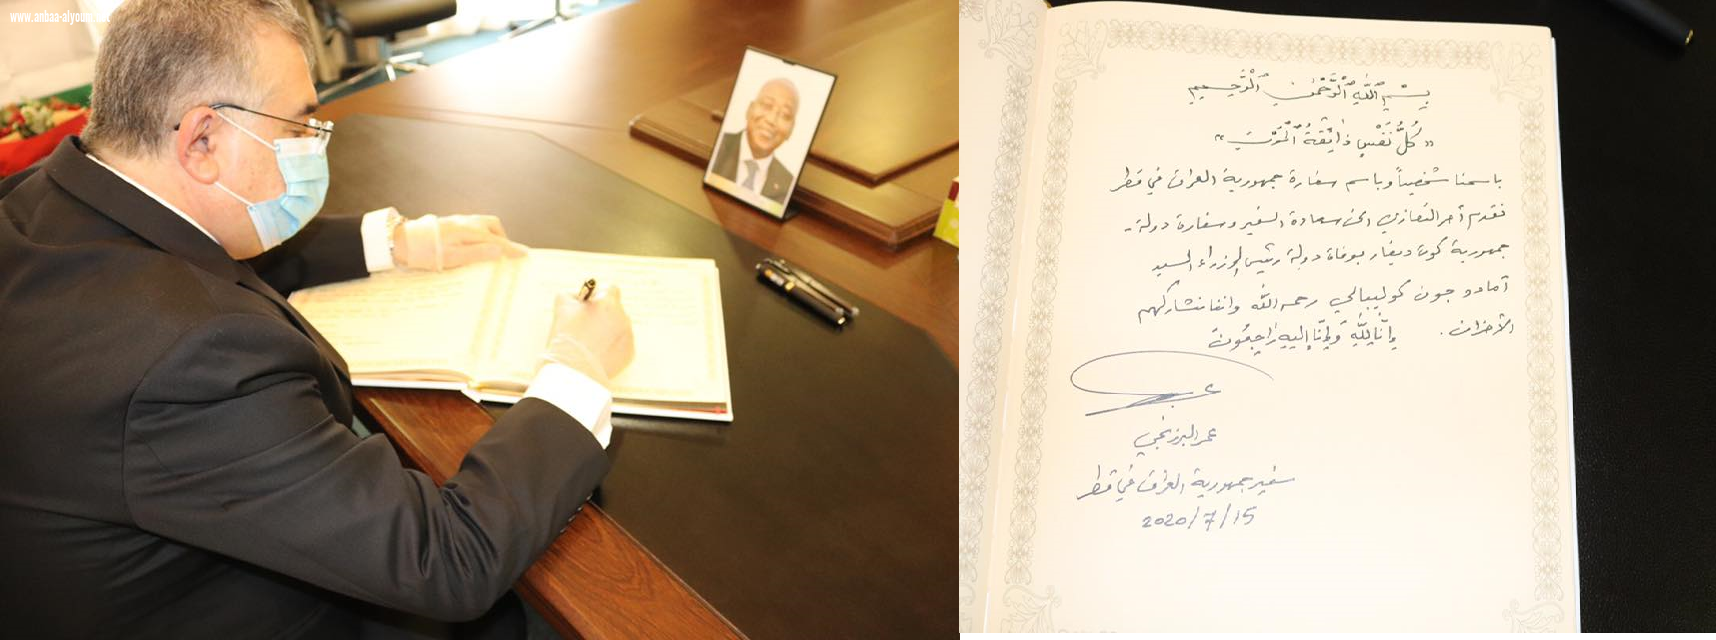 www.anbaa-alyoum
بِسْمِ ٱللَّهِ ٱلرَّحْمَٰنِ ٱلرَّحِيمِ
«كُلُّ نَفْسٍ ذَائِقَةُ ٱلْمَوْتِ»
باسمنا شخصياً وباسم سفارة جمهورية العراق في قطر
نقدم أحر التعازي الى سعادة السفير وسفارة دولة -
جمهورية كوت ديفار بوفاة دولة رئيس الوزراء السيد
آمادو جون كوليبالي رحمه الله واننا نشارككم
الأحزان. وإِنَّا لِلَّهِ وَإِنَّا إِلَيْهِ رَاجِعُونَ
عمر البرزنجي
سفير جمهورية العراق في قطر
2020/7/15